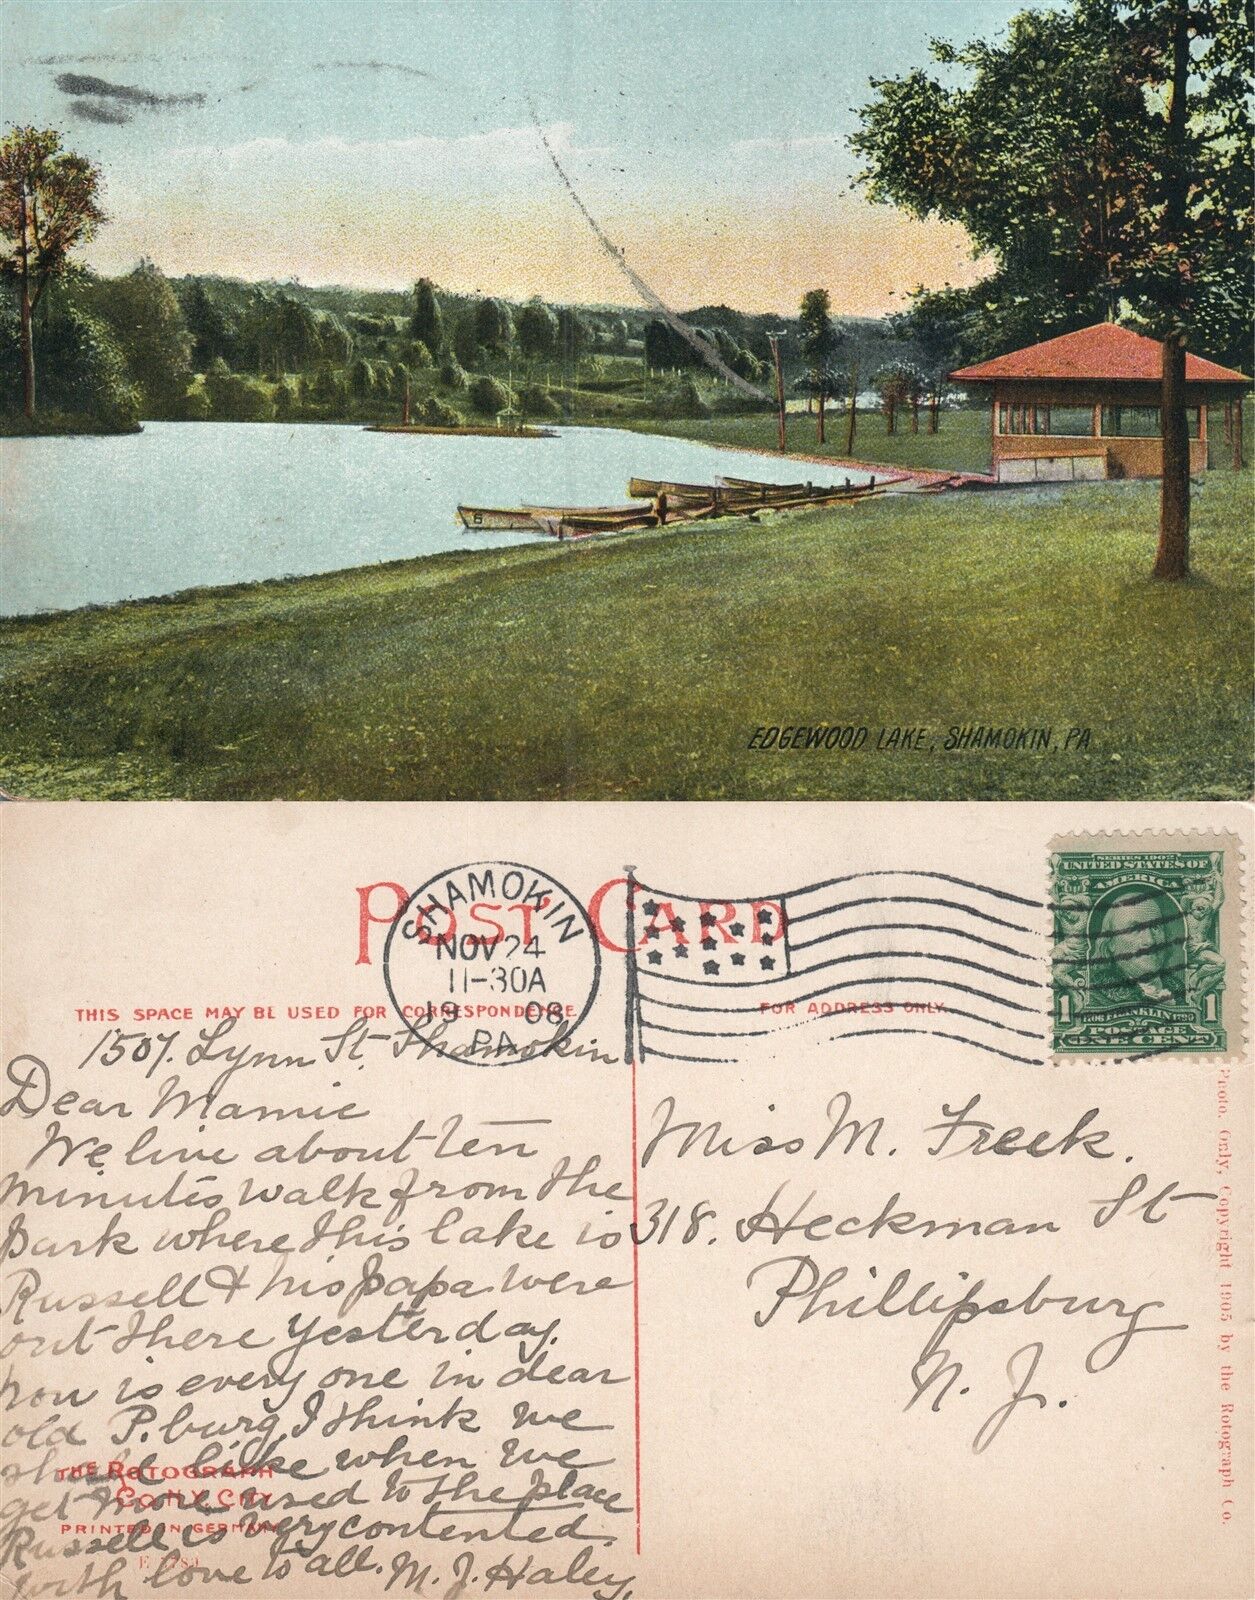 6
EDGEWOOD LAKE, SHAMOKIN, PA
POST CARD
SHAMOKIN
NOV 24
11-30A
19 08
PA
SERIES 1902
UNITED STATES OF
AMERICA
1 1706 FRANKLIN 1790 1
POSTAGE
ONE CENT
THIS SPACE MAY BE USED FOR CORRESPONDENCE
FOR ADDRESS ONLY.
1507. Lynn St Shamokin
Dear Mamie
We live about ten
minutes walk from the
park where this lake is
Russell & his papa were
out there yesterday.
how is every one in dear
old P.burg, I think we
shall like when we
get more used to the place
Russell is very contented.
with love to all. M. J. Haley.
Miss M. Freek.
318. Heckman St
Phillipsburg
N. J.
THE ROTOGRAPH
CO. N.Y. CITY
PRINTED IN GERMANY
Photo. Only, Copyright 1905 by the Rotograph Co.